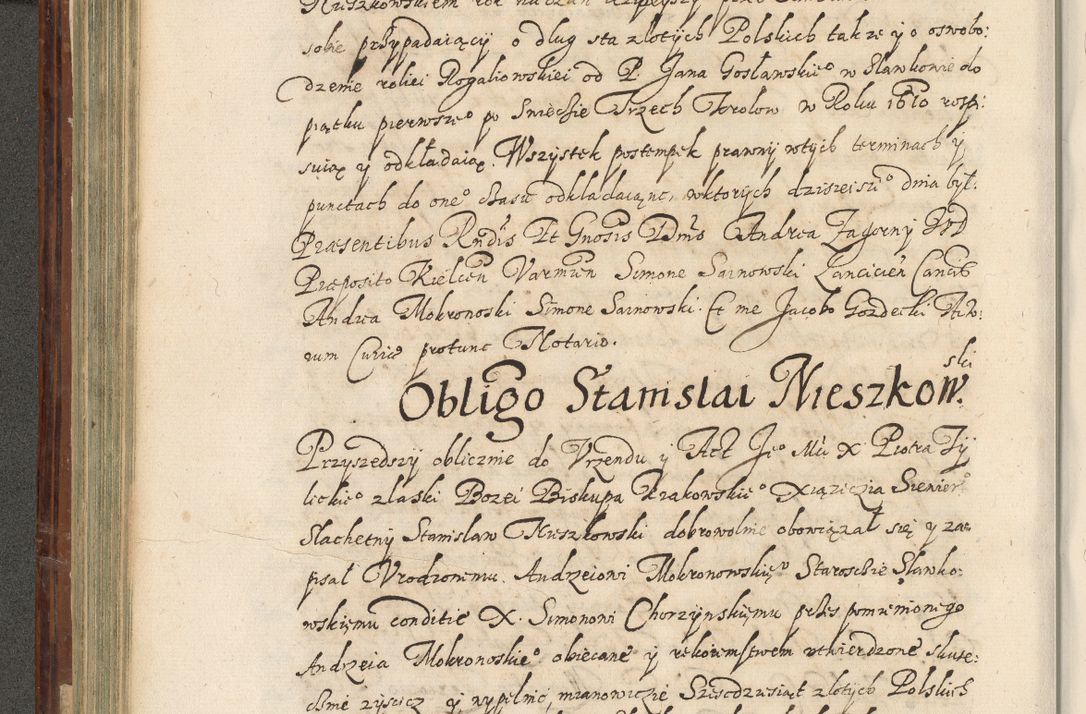 sobie przypadaiący o dług sta złotych Polskich także y o oswobo:
dzenie roliei Rogaliowskiei od P. Jana Gosławskieo w Sławkowie do
piątku pierwszeo po Swięcie Trzech Krolow w Roku 1610
suiąc y odkładaiąc. Wszystek postempek prawny wtych terminach y
punctach do oneo czasu odkładaiąc, wktorych dzisieiszeo dnia był.
Præsentibus Rndis Et Gnosis Dnis Andrea Zagorny
Præposito Kielcen Varmien Simone Sarnowski Lancicien Cancis
Andrea Mokronoski Simone Sarnowski. Et me Jacobo Gozdecki Act:
rum Curiæ protunc Notario.
Obligo Stanislai Nieszkow.
ski
Przyszedszy oblicznie do Vrzendu y Act Jeo Mci X Piotra Ty
lickieo złaski Bozei Biskupa Krakowskieo Xiązięzia Siewier:
Slachetny Stanislaw Nieszkowski dobrowolnie obowiązał się y za:
pisał Vrodzonemu. Andrzeiowi Mokronowskieo Staroscie Sławko:
wskięmu conditie X. Simonowi Chorzynskięmu przes pomienionego
Andrzeia Mokronoskieo obiecane y rękoiemstwem vtwierdzone skute:
cznie zysczcz y wypełnić, mianowiczie Szescdziesiąt złotych Polskich